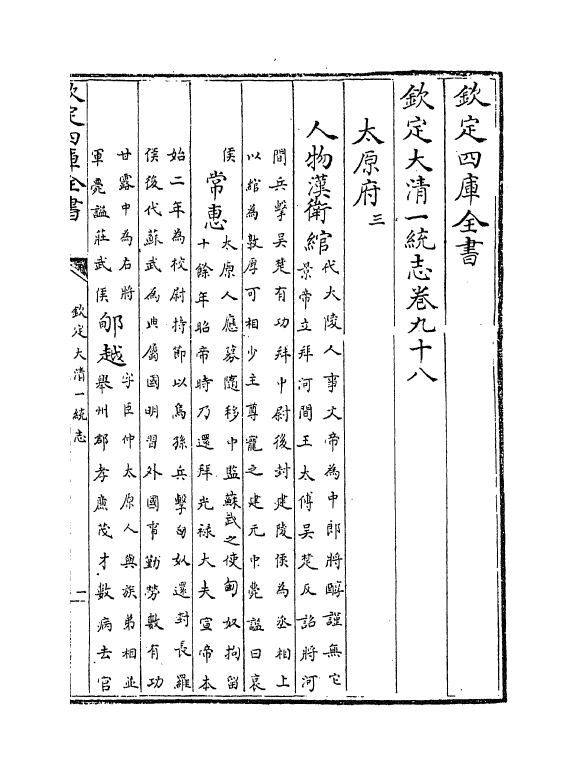 欽定四庫全書
欽定大清一統志卷九十八
太原府三
人物漢衛綰
代大陵人事文帝為中郎將醇謹無它
景帝立拜河間王太傅吳楚反詔將河
間兵擊吳楚有功拜中尉後封建陵侯為丞相上
以綰為敦厚可相少主尊寵之建元中薨諡曰哀
侯
常惠
太原人應募隨栘中監蘇武之使匈奴拘留
十餘年昭帝時乃還拜光禄大夫宣帝本
始二年為校尉持節以烏孫兵擊匈奴還封長羅
侯後代蘇武為典屬國明習外國事勤勞數有功
甘露中為右將
軍薨諡莊武侯
郇越
字臣仲太原人與族弟相並
舉州郡孝廉茂才數病去官
欽定四庫全書
欽定大清一統志
一